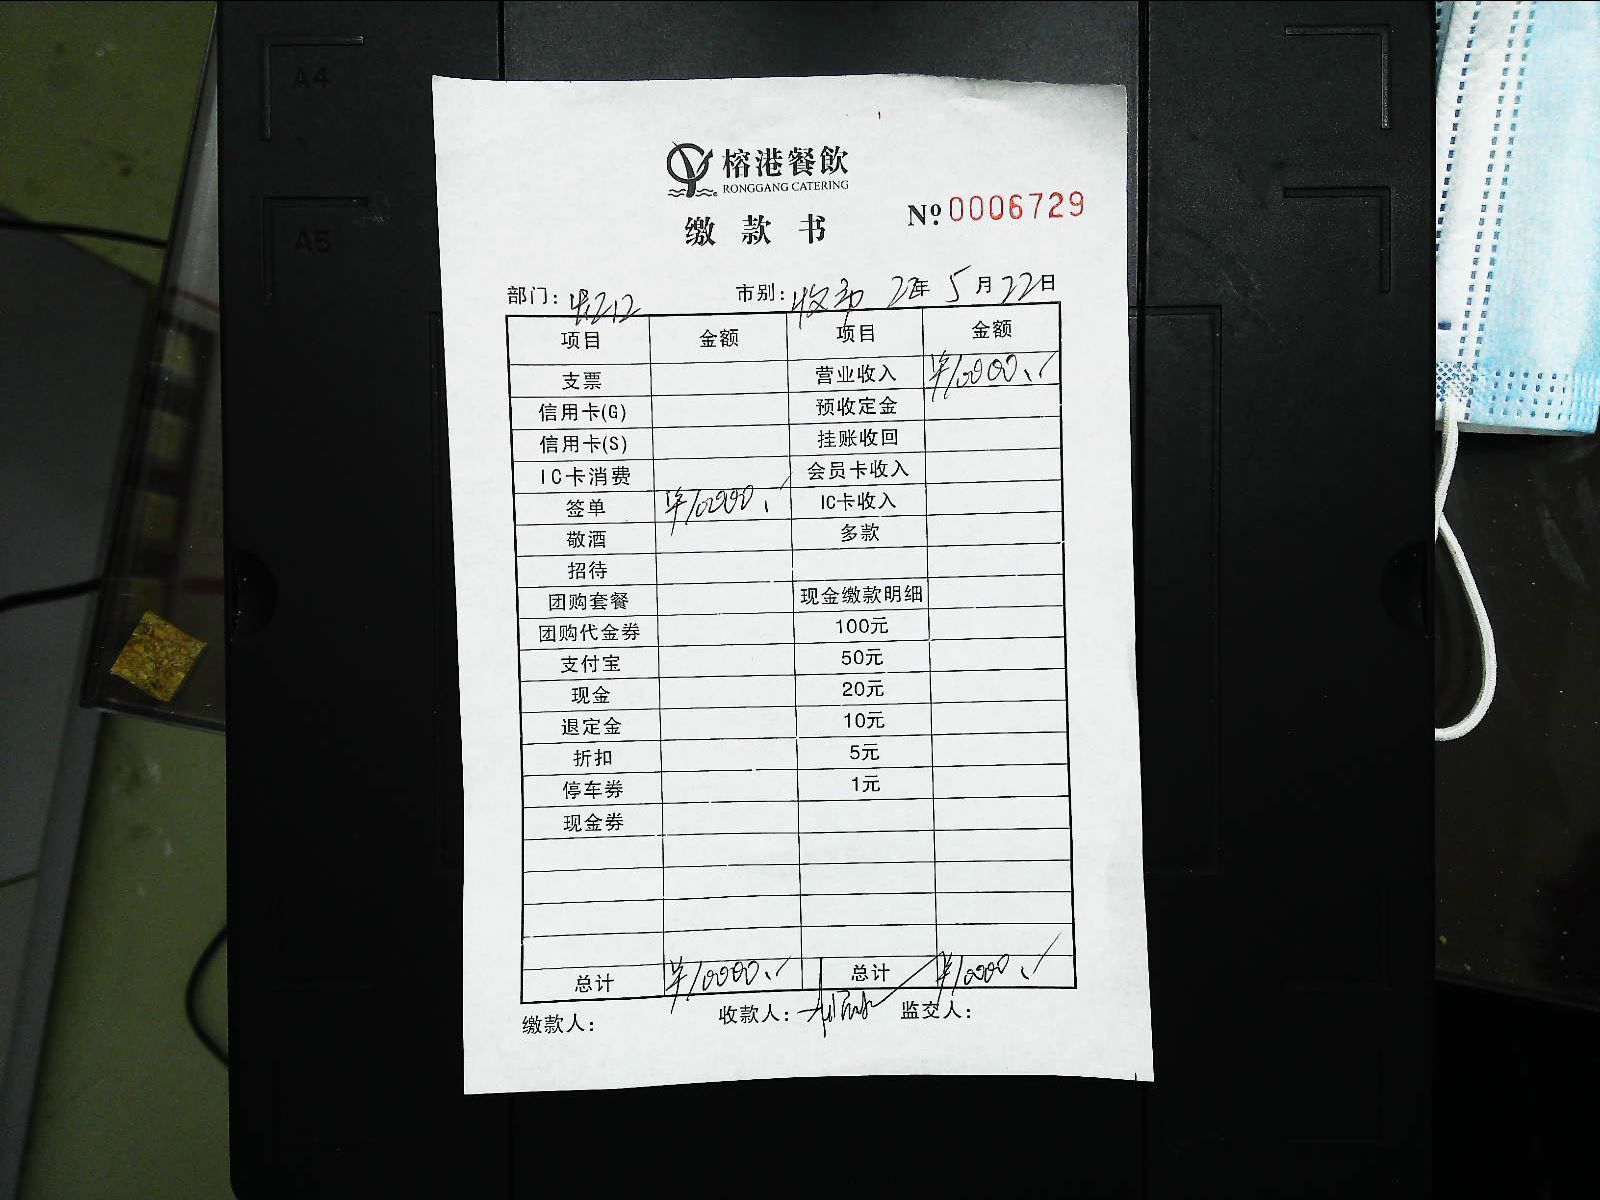 A4
A5
榕港餐飲
RONGGANG CATERING
缴款书
Nº 0006729
部门: 市别: 收市 22年 5月 22日
项目 金额 项目 金额
支票 营业收入 ¥10000.
信用卡(G) 预收定金
信用卡(S) 挂账收回
IC卡消费 会员卡收入
签单 ¥10000. IC卡收入
敬酒 多款
招待
团购套餐 现金缴款明细
团购代金券 100元
支付宝 50元
现金 20元
退定金 10元
折扣 5元
停车券 1元
现金券
总计 ¥10000. 总计 ¥10000.
缴款人: 收款人: 监交人: